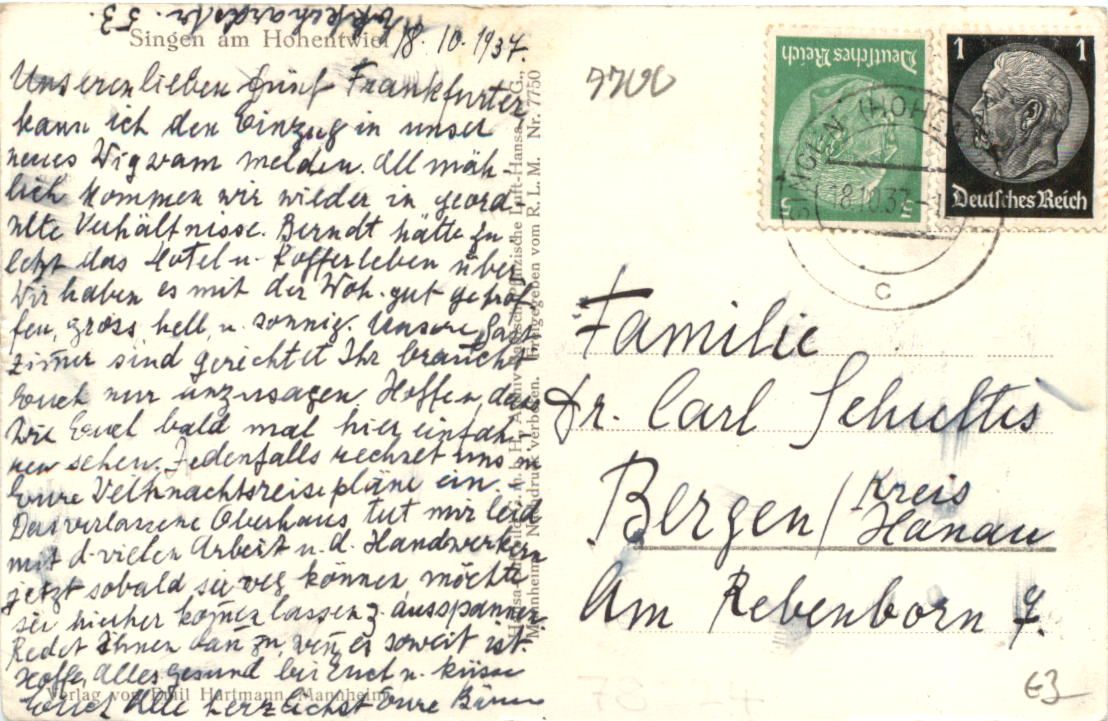 Ekkehardstr. 53
Singen am Hohentwiel 18.10.1937.
Unseren lieben fünf Frankfurter
kann ich den Einzug in unser
neues Wigwam melden. All mäh-
lich kommen wir wieder in geord-
nete Verhältnisse. Berndt hätte zu
letzt das Hotel u. Kofferleben über
Wir haben es mit der Woh. gut getrof
fen, gross, hell u. sonnig. Unsere Gast
zimmer sind gerichtet Ihr braucht
Euch nur anzusagen. Hoffen, dass
wir Euch bald mal hier einfah-
ren sehen. Jedenfalls rechnet uns in
Eure Weihnachtsreisepläne ein.
Das verlassene Oberhaus tut mir leid
mit d. vielen Arbeit u. d. Handwerkern
jetzt sobald sie weg können möchte
sie hierher kommen lassen z. ausspannen
Redet Ihnen dann zu, wenn es soweit ist.
Hoffe, alles gesund bei Euch u. küsse
Euch Alle herzlichst Eure
Verlag von Emil Hartmann, Mannheim
Hansa Luftbild G.m.b.H. Archiv Badisch-Pfälzische Luft-Hansa A.G.,
Mannheim. Nachdruck verboten. Freigegeben vom R. L. M. Nr. 7750
Deutsches Reich
5 5
1 1
Deutsches Reich
SINGEN (HOHENTWIEL)
18.10.37
c
7700
Familie
Dr. Carl Schultes
Bergen / Kreis
Hanau
Am Rebenborn 7.
€3